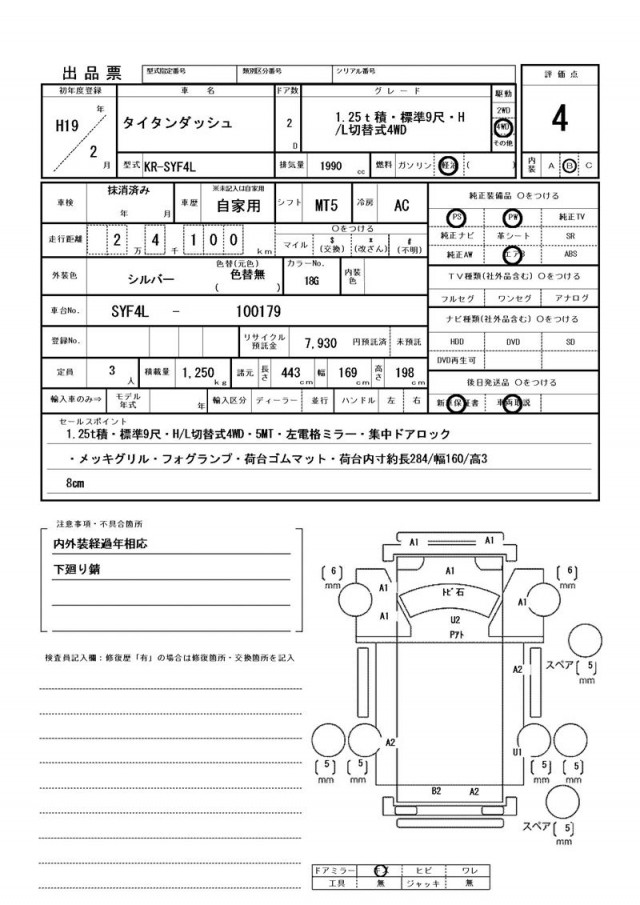 出品票 型式指定番号 類別区分番号 シリアル番号 評価点
初年度登録 車名 ドア数 グレード 駆動
H19 年 タイタンダッシュ 2 D 1.25t積・標準9尺・H 2WD 4
/L切替式4WD 4WD
2 月 その他
型式 KR-SYF4L 排気量 1990 cc 燃料 ガソリン 軽油 ( ) 内装 A B C
車検 抹消済み 年 月 車歴 ※未記入は自家用 自家用 シフト MT5 冷房 AC 純正装備品 〇をつける
走行距離 2 万 4 千 1 0 0 km 〇をつける PS PW 純正TV
マイル $ (交換) * (改ざん) # (不明) 純正ナビ 革シート SR
純正AW エアB ABS
外装色 シルバー 色替(元色) 色替無 ( ) カラーNo. 18G 内装色 TV種類(社外品含む) 〇をつける
フルセグ ワンセグ アナログ
車台No. SYF4L - 100179 ナビ種類(社外品含む) 〇をつける
登録No. リサイクル預託金 7,930 円預託済 未預託 HDD DVD SD
DVD再生可
定員 3 人 積載量 1,250 kg 諸元 長さ 443 cm 幅 169 cm 高さ 198 cm 後日発送品 〇をつける
輸入車のみ⇒ モデル年式 年 輸入区分 ディーラー 並行 ハンドル 左 右 新車保証書 車両取説
セールスポイント
1.25t積・標準9尺・H/L切替式4WD・5MT・左電格ミラー・集中ドアロック
・メッキグリル・フォグランプ・荷台ゴムマット・荷台内寸約長284/幅160/高3
8cm
注意事項・不具合箇所
内外装経過年相応
下廻り錆
検査員記入欄:修復歴「有」の場合は修復箇所・交換箇所を記入
A1 A1
[6] mm A1 [6] mm
A1 トビ石 A1
A1 U2
Pアト
A2 スペア[5] mm
A2 U1
[5] mm [5] mm [5] mm [5] mm
B2 A2
スペア[5] mm
ドアミラー キズ ヒビ ワレ
工具 無 ジャッキ 無